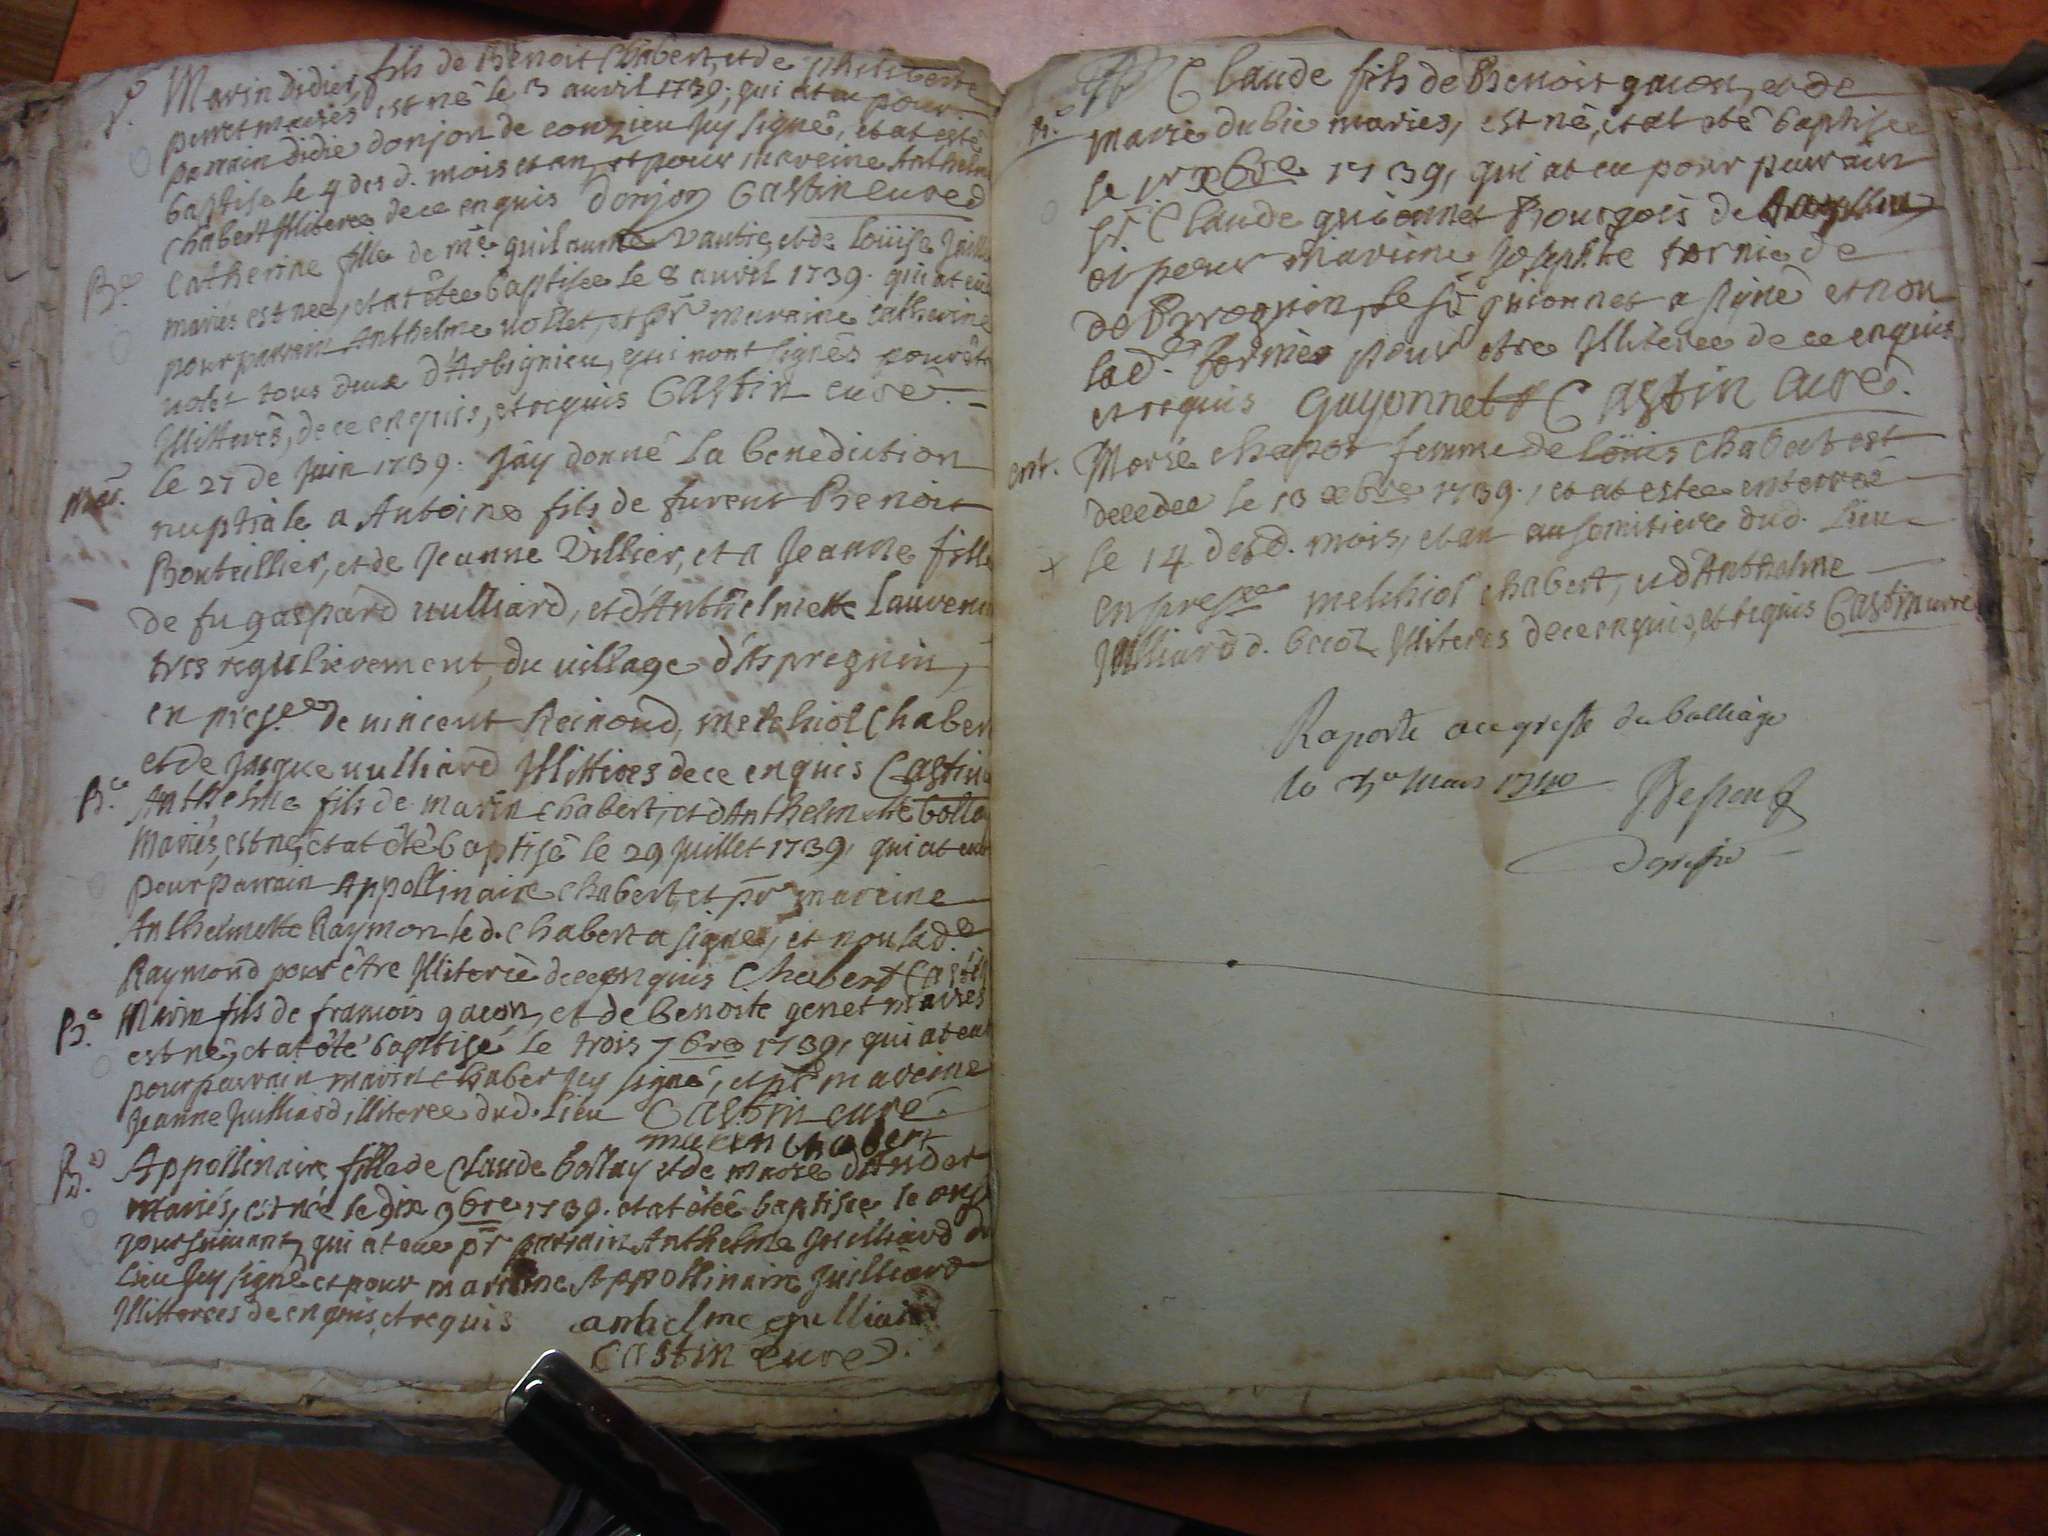 B. Marin Didier, fils de Benoit Chabert, et de philiberte
perret mariés est né le 3 avvril 1739; qui at eu pour
parrain didie donjon de conzieu Icy signé, et at esté
baptise le 4 des d. mois et an, et pour mareine Anthelm
Chabert Illiteree de ce enquis Donjon Castin curé
B.e Catherine fille de me. guilaume vautie, et de Loüise Juill
mariés est neé, et at êteé baptiseé le 8 avril 1739. qui at eu
pour parrein Anthelme nollet, et pr maraine Catherine
nolet tous deux d'Arbignieu, qui nont signés pour êtr
Illitteres, de ce enquis, et requis Castin curé
Mar. le 27 de Juin 1739. J'ay donné la benediction
nuptiale a Antoine fils de furent Benoit
Bonteillier, et de Jeanne Villier, et a Jeanne fille
de fu gaspard uulliard, et d'Anthelmette Lauren
tres regulierement, du village d'Aspregnin,
en prese. de vincent Reinond, melchiol Chaber
et de Jacque uulliard Illitteres de ce enquis Castin
B.e Anthelme fils de marin Chabert, et d'Anthelmette bolla
Mariés, est né, et at été baptisé le 29 Juillet 1739, qui at eu
pour parrain Appollinaire Chabert, et pr mareine
Anthelmette Raymon le d. Chabert a signe, et non lad.e
Raymond pour être Illiterée de ce enquis Chabert Castin
B.e Marin fils de francois gacon, et de benoite genet mariés
est né, et at été baptisé le trois 7bre 1739, qui at eu
pour parrain marin Chaber Icy signé, et pr mareine
Jeanne Juilliard, illiteree dud. lieu Castin curé
marin chabert
B.e Appollinaire fille de Claude bollay et de marie d'Ander
mariés, est née le dix 9bre 1739. et at êteé baptisée le onze
jour suivant, qui at eue pr parrain Anthelme Juilliard du
lieu Icy signé et pour mareine Appollinaire Juilliard
Illitterees de enquis, et requis anthelme guilliard
Castin curé.
B.e Claude fils de Benoist gacon, et de
Marie dubie mariés, est né, et at eté baptisé
le pr xbre 1739, qui at eu pour parrain
sr. Claude guionnet Bourgois de
et pour Mareine Josephte tornie de
de Pregnin, le sr. guionnet a signé et non
lad.e tornier pour etre Illiteree de ce enquis
et requis Guyonnet Castin curé.
ent. Marie Chapot femme de Loüis Chabert est
decedee le 13 xbre 1739., et at estee enterreé
x le 14 des d. mois, et an au semitiere dud. lieu
en prese. melchiol Chabert, et d'Anthelme
Juilliard d. Illiteres de ce enquis, et requis Castin curé
Raporté au greffe du balliage
le mars 1740